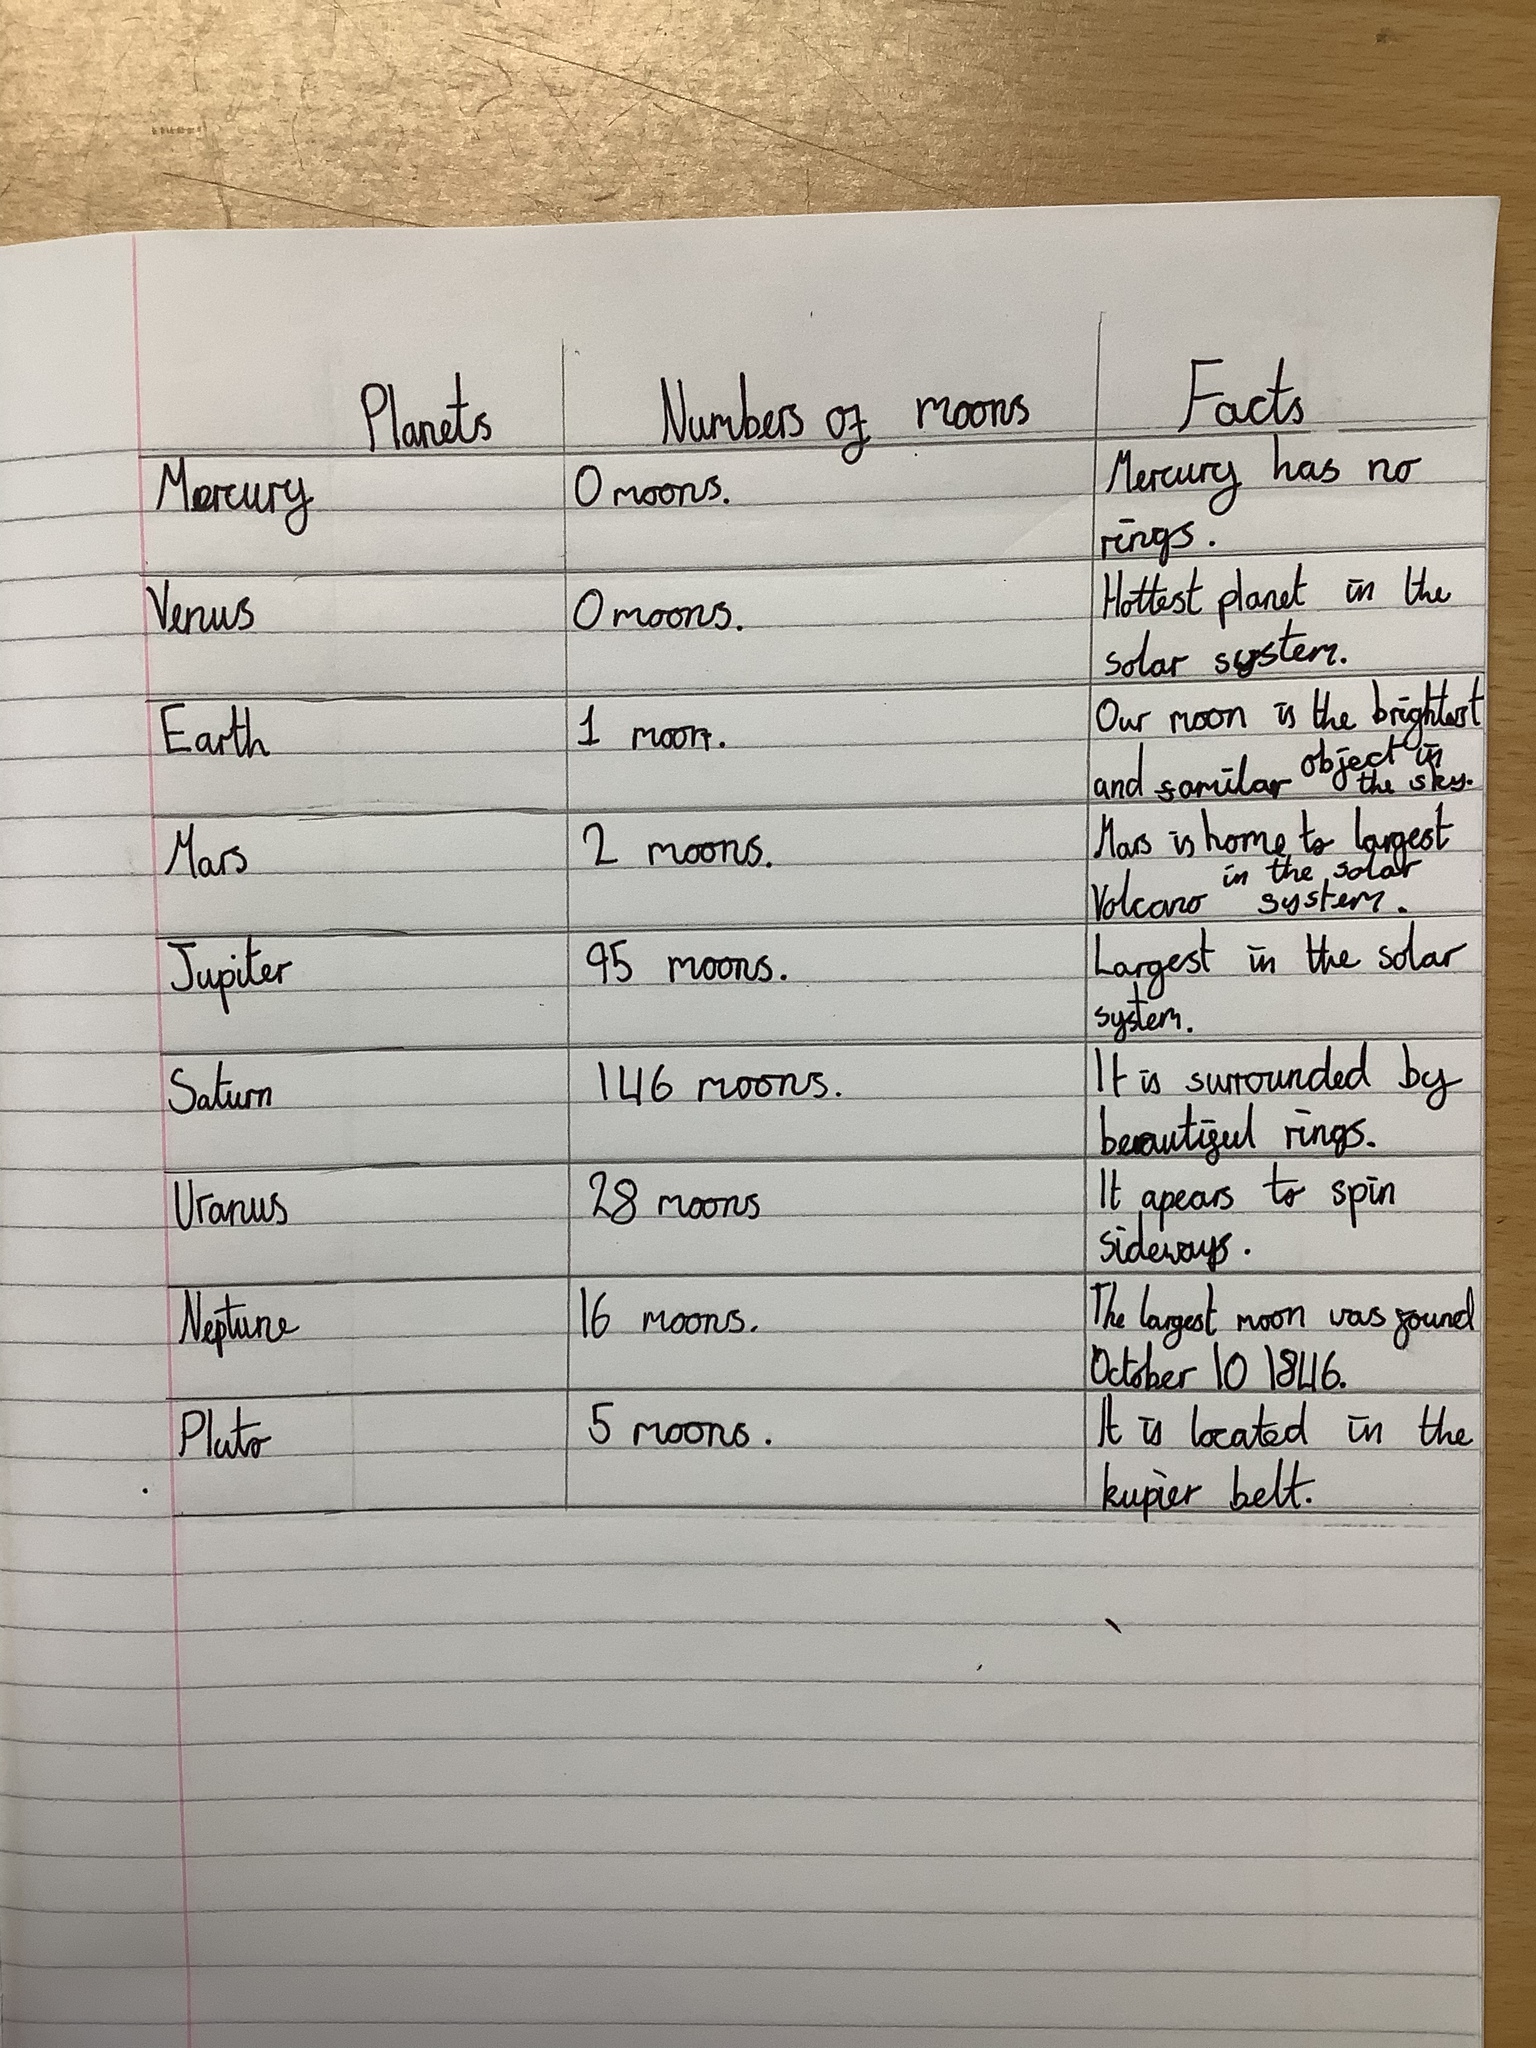 Planets Numbers of moons Facts
Mercury 0 moons. Mercury has no
rings.
Venus 0 moons. Hottest planet in the
solar system.
Earth 1 moon. Our moon is the brightest
and samilar object in
the sky.
Mars 2 moons. Mars is home to largest
Volcano in the solar
system.
Jupiter 95 moons. Largest in the solar
system.
Saturn 146 moons. It is surrounded by
beautiful rings.
Uranus 28 moons It apears to spin
sideways.
Neptune 16 moons. The largest moon was found
October 10 1846.
Pluto 5 moons. It is located in the
kupier belt.